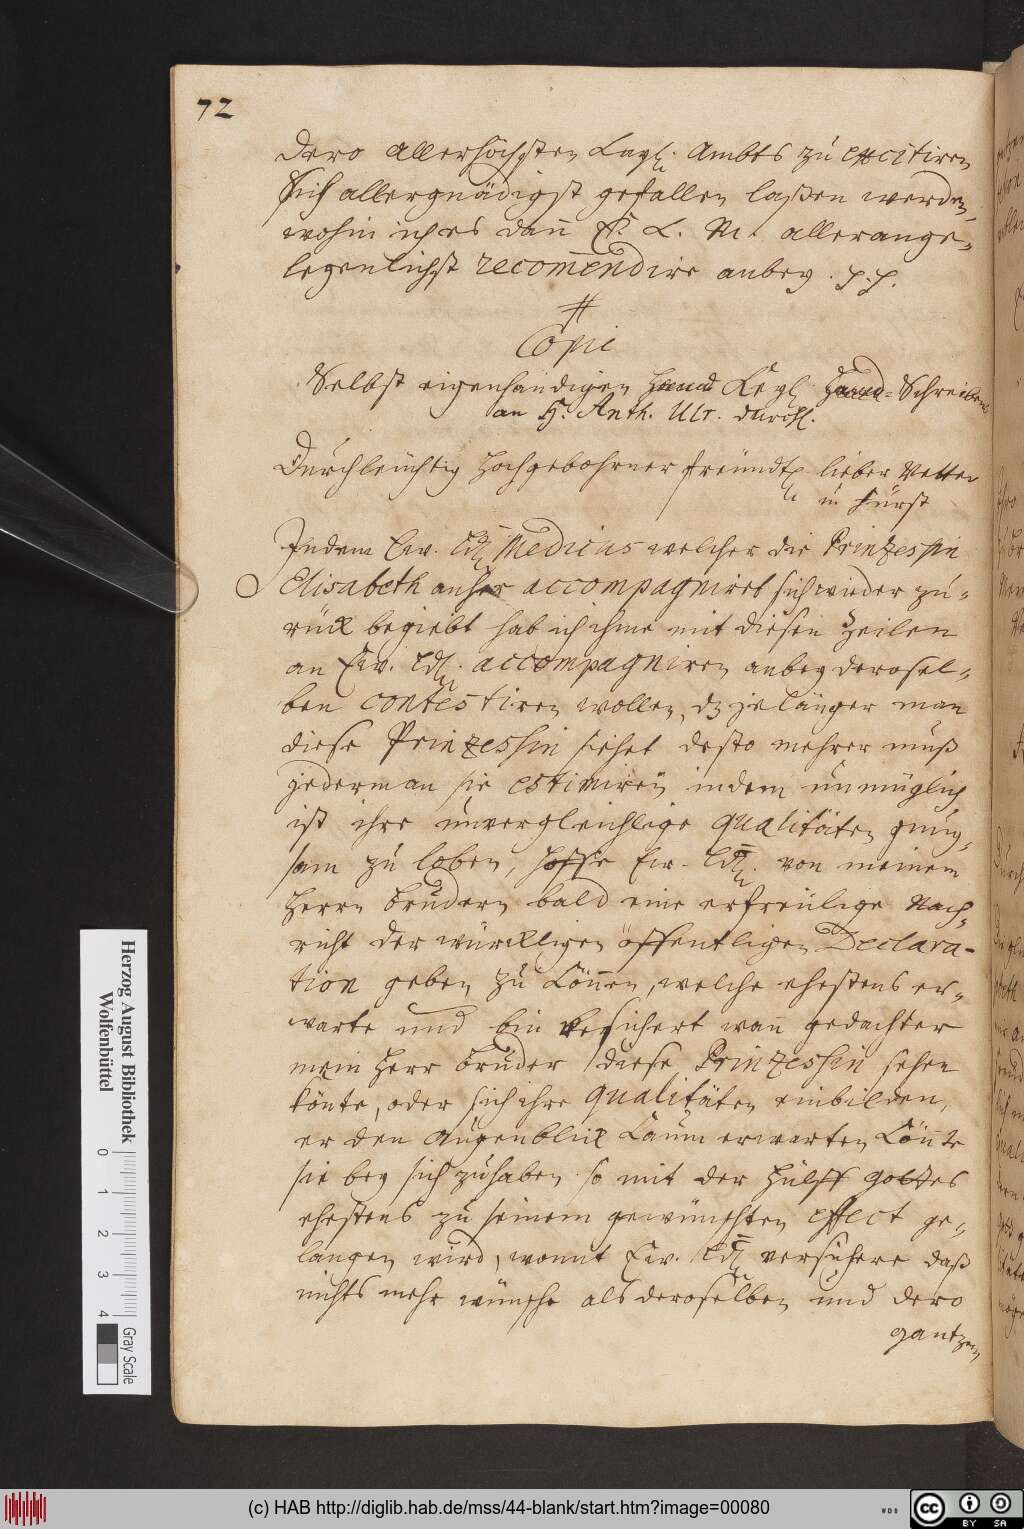 72
dero allerhöchsten Kayl. Ambts zu effcitiren
Sich allergnädigst gefallen laßen werden,
wohin ich es dañ E. K. M. allerange-
legenlichst recom̄endire anbey. p. p.
Copie
Selbst eigenhändigen Kegl Hand-Schreibens
an H. Anth. Ulr. durchl.
Durchleuchtig Hochgebohrner freundtl lieber Vetter
u Fürst
Indem Ew. Ldl Medicus welcher die Printzessin
Elisabeth anher accompagniret sich wieder zu-
rück begiebt hab ich ihme mit diesen Zeilen
an Ew. Ldl. accompagniren anbey derosel-
ben contestiren wollen, dz je länger man
diese Prinzessin siehet desto mehrer muß
jederman sie estimireñ indem unmüglich
ist ihre unvergleichlige qualitäten gnug-
sam zu loben, hoffe Ew. Ldl. von meinem
Herrn Brudern bald eine erfreülige Nach-
richt der würckligen öffentligen Declara-
tion geben zu köñen, welche ehestens er-
warte und bin versichert wañ gedachter
mein Herr Bruder diese Prinzessin sehen
könte, oder sich ihre qualitäten einbilden,
er den augenblick kaum erwarten köñte
sie bey sich zuhaben so mit der hülff gottes
ehestens zu seinem gewünschten effect ge-
langen wird, womit Ew. Ldl versichere daß
nichts mehr wünsche als deroselben und dero
gantzen
Herzog August Bibliothek
Wolfenbüttel
0 1 2 3 4
Gray Scale
(c) HAB http://diglib.hab.de/mss/44-blank/start.htm?image=00080
WDB
cc BY SA